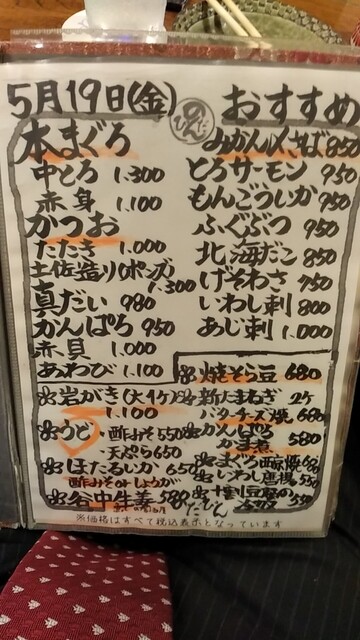 5月19日(金) おすすめ
本まぐろ
中とろ 1.300
赤身 1.100
かつお
たたき 1.000
土佐造り(ポンズ) 1.300
真だい 980
かんぱち 950
赤貝 1.000
あわび 1.100
みかん〆さば 850
とろサーモン 950
もんごういか 950
ふぐぶつ 950
北海だこ 850
げそわさ 750
いわし刺 800
あじ刺 1.000
岩がき(大1ケ) 1.100
うど・酢みそ 550
・天ぷら 650
ほたるいか 650
酢みそorしょうが
谷中生姜 580
焼そら豆 680
新たまねぎ 2ケ
バターチーズ焼 680
かんぱち
かま煮 580
まぐろ西京焼 680
いわし唐揚 550
十割豆腐の
550
だいぢん
※価格はすべて税込表示となっています